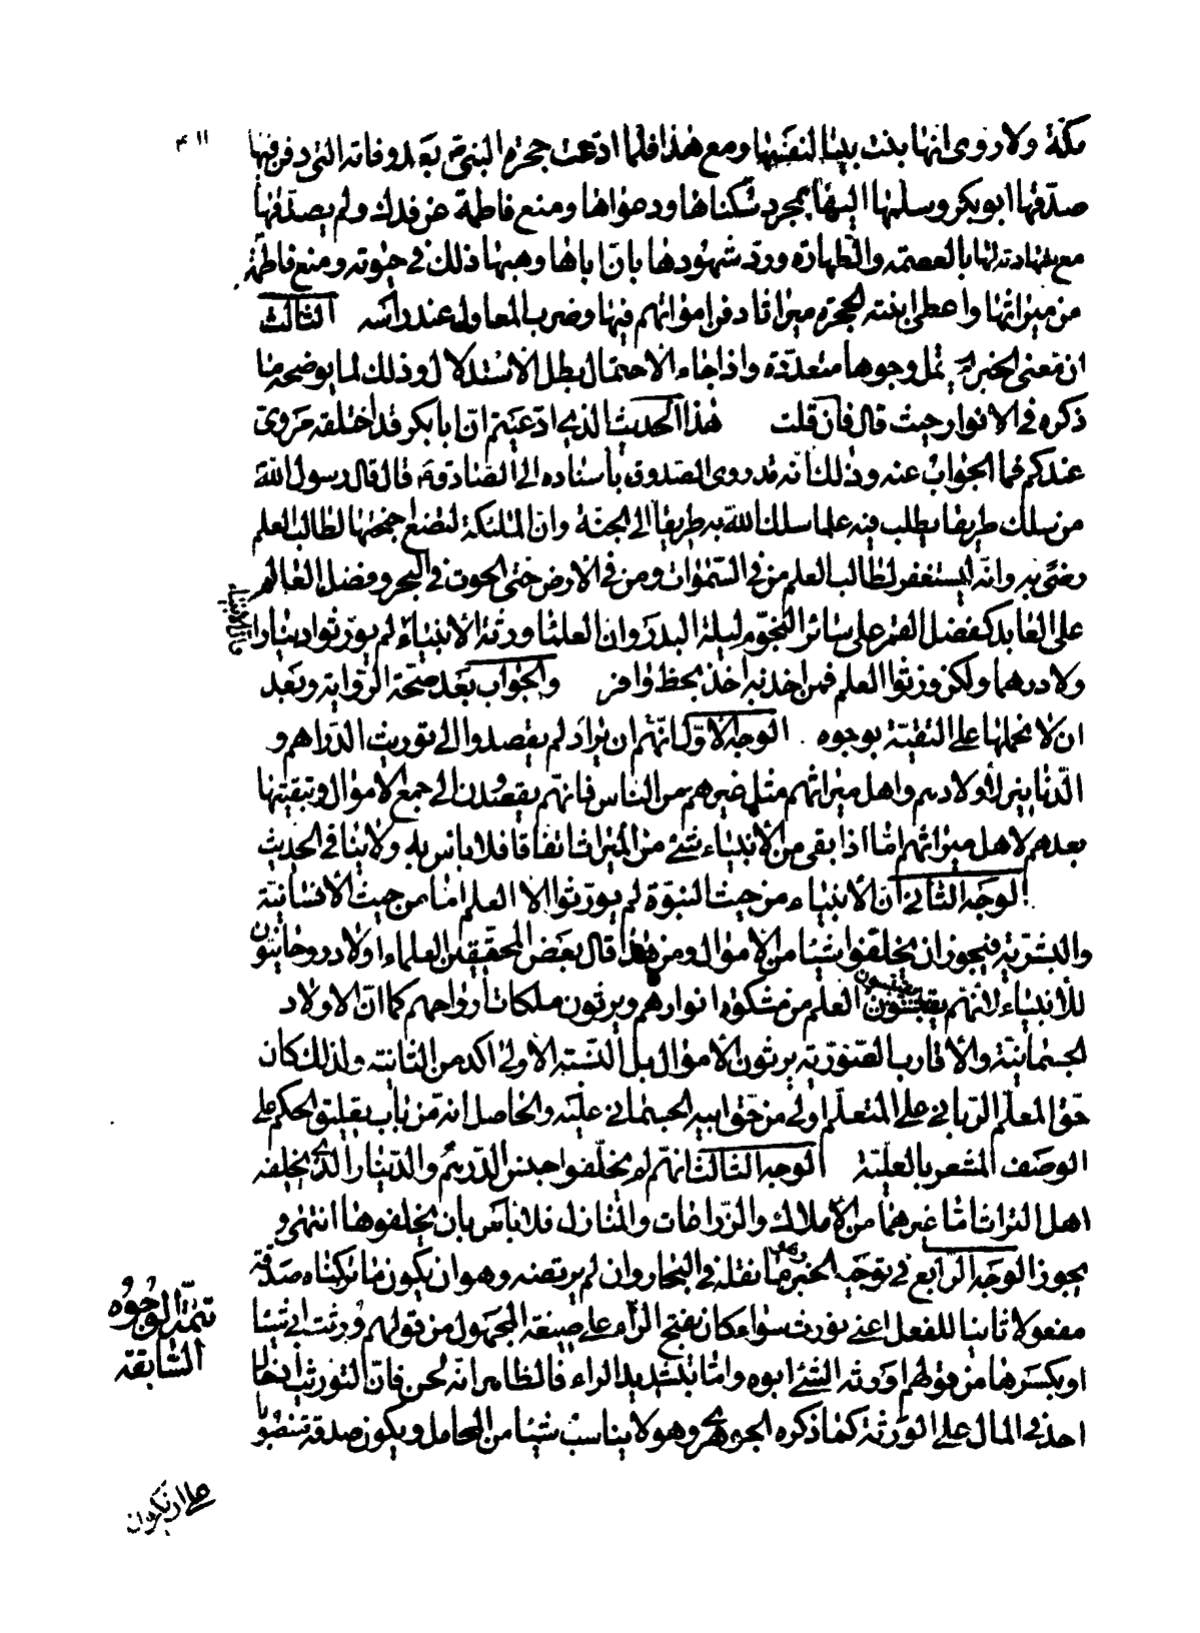 ٤١١
مكة ولا روى انها بنت بيتا لنفسها ومع هذا فلما ادعت حجرة النبي ص بعد وفاته التي دفن فيها
صدقها ابو بكر وسلمها اليها بمجرد سكناها ودعواها ومنع فاطمة عن فدك ولم يصدقها
مع شهادته لها بالعصمة والطهارة ورد شهودها بان اباها وهبها ذلك في حيوته ومنع فاطمة
من ميراثها واعطى ابنته الحجرة ميراثا دفن امواتهم فيها وضرب المعاول عند راسه الثالث
ان معنى الخبر يحتمل وجوها متعددة واذا جاء الاحتمال بطل الاستدلال وذلك لما يوضحه ما
ذكره في الانوار حيث قال فان قلت هذا الحديث الذي ادعيتم ان ابا بكر قد اختلقه مروي
عندكم فما الجواب عنه وذلك انه قد روى الصدوق باسناده الى الصادق ع قال قال رسول الله ص
من سلك طريقا يطلب فيه علما سلك الله به طريقا الى الجنة وان الملئكة لتضع اجنحتها لطالب العلم
رضى به وانه ليستغفر لطالب العلم من في السموات ومن في الارض حتى الحوت في البحر وفضل العالم
على العابد كفضل القمر على سائر النجوم ليلة البدر وان العلماء ورثة الانبياء لم يورثوا دينارا
ان الانبياء
ولا درهما ولكن ورثوا العلم فمن اخذ به اخذ بحظ وافر والجواب بعد صحة الرواية وبعد
ان لا نحملها على التقية بوجوه الوجه الاول انهم ان يراد لم يقصدوا الى توريث الدراهم و
الدنانير لاولادهم واهل ميراثهم مثل غيرهم من الناس فانهم يقصدون الى جمع الاموال وتبقيتها
بعدهم لاهل ميراثهم اما اذا بقى من الانبياء شئ من الميراث اتفاقا فلا باس به ولا ينافي الحديث
الوجه الثاني ان الانبياء من حيث النبوة لم يورثوا الا العلم اما من حيث الانسانية
والبشرية فيجوز ان يخلفوا شيئا من الاموال ومن هذا قال بعض المحققين العلماء اولاد روحانيون
للأنبياء لانهم يقتبسون العلم من مشكوة انوارهم ويرثون ملكات ارواحهم كما ان الاولاد
يقتبسون
الجسمانية والاقارب الصورية يرثون الاموال بل النسبة الاولى اكد من الثانية ولذلك كان
حق المعلم الرباني على المتعلم اولى من حق ابيه الجسماني عليه والحاصل انه من باب تعليق الحكم على
الوصف المشعر بالعلية الوجه الثالث انهم لم يخلفوا جنس الدرهم والدينار الذي يخلفه
اهل التراث اما غيرهما من الاملاك والزراعات والمنازل فلا باس بان يخلفوها انتهى و
يجوز الوجه الرابع في توجيه الخبر ما نقله في البحار وان لم يرتضه وهو ان يكون ما تركناه صدقة
مفعولا ثانيا للفعل اعني نورث سواء كان بفتح الراء على صيغة المجهول من قولهم ورثت ابي شيئا
تتمة الوجوه
السابقة
او بكسرها من قولهم اورثه الشئ ابوه واما بتشديد الراء فالظاهر انه لحن فان التوريث ادخال
احد في المال على الورثة كما ذكره الجوهري وهو لا يناسب شيئا من المحامل ويكون صدقة منصوبا
على ان يكون